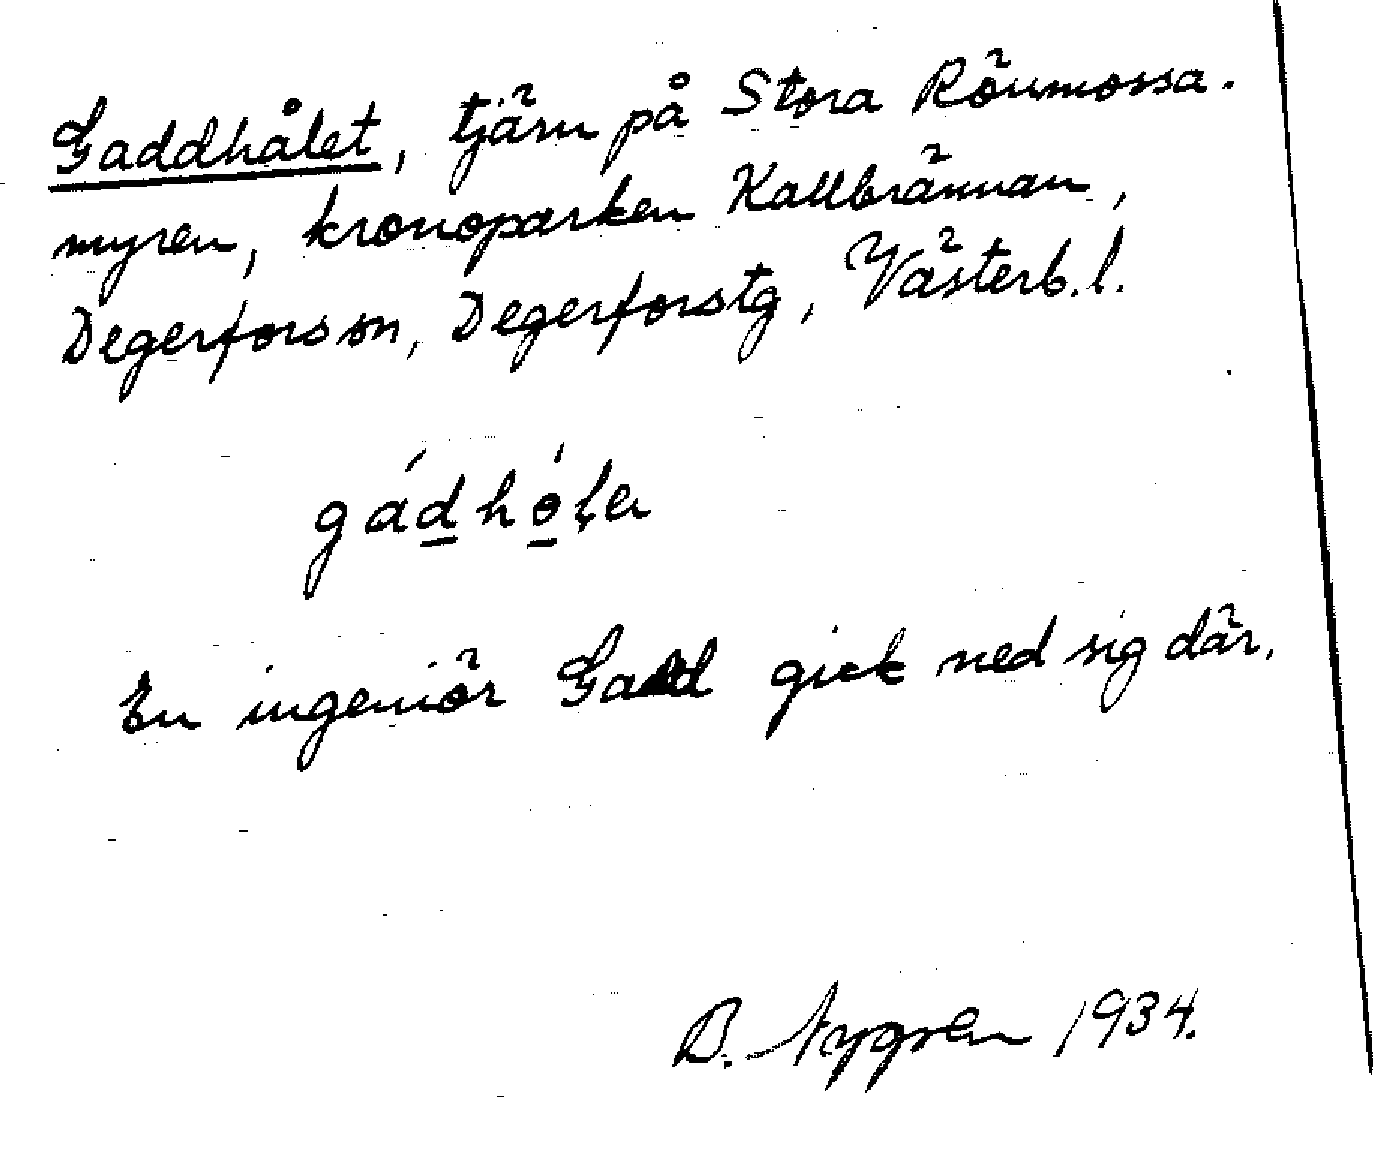 Gaddhålet, tjärn på Stora Rönmossa.
myren, kronoparken Kallbrännan,
Degerforssn, Degerforstg, Västerb.l.
gádhóļen
En ingeniör Gadd gick ned sig där.
B. Nygren 1934.